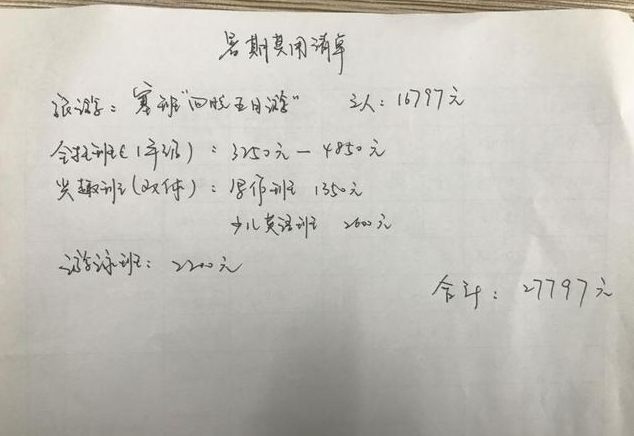 暑期费用清单
旅游：塞班“四晚五日游” 三人：16797元
全托班（1年级）：3250元－4850元
兴趣班（双休）：写作班 1350元
少儿英语班 2600元
游泳班：2200元
合计：27797元